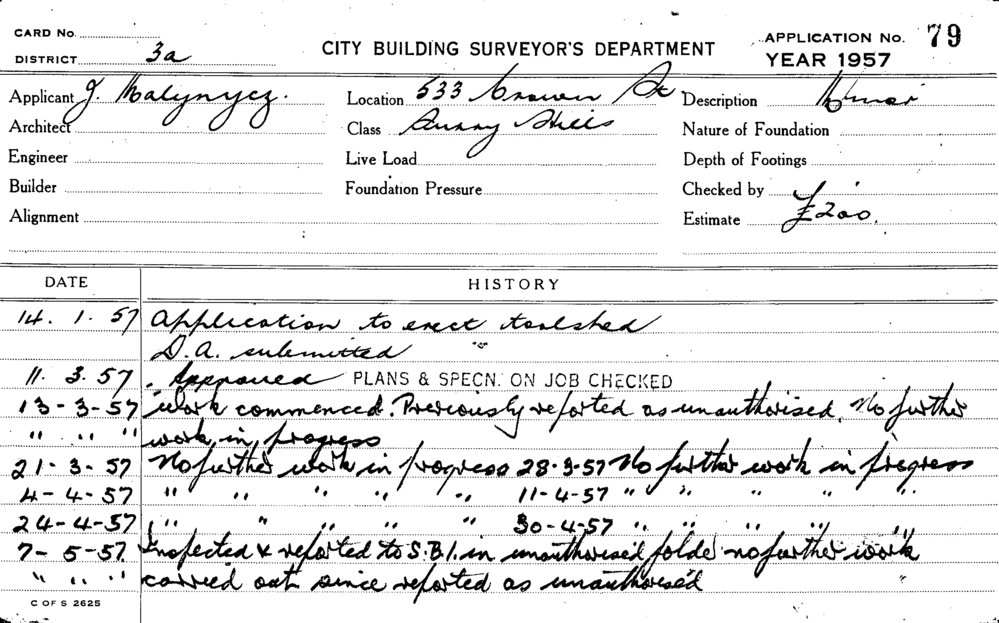 CARD No.
DISTRICT 3a
CITY BUILDING SURVEYOR'S DEPARTMENT
APPLICATION No. 79
YEAR 1957
Applicant J. Malynycz. Location 533 Crown St Description Minor
Architect Class Surry Hills Nature of Foundation
Engineer Live Load Depth of Footings
Builder Foundation Pressure Checked by
Alignment Estimate £200.
DATE HISTORY
14. 1. 57 Application to erect toolshed
D.A. submitted
11. 3. 57 . Approved PLANS & SPECN. ON JOB CHECKED
13-3-57 work commenced. Previously reported as unauthorised. No further
" " " work in progress
21-3-57 No further work in progress 28-3-57 No further work in progress
4-4-57 " " " " " 11-4-57 " " " " "
24-4-57 " " " " " 30-4-57 " " " " "
7-5-57. Inspected & reported to S.B.I. in unauthorised folder no further work
" " " carried out since reported as unauthorised
C OF S 2625